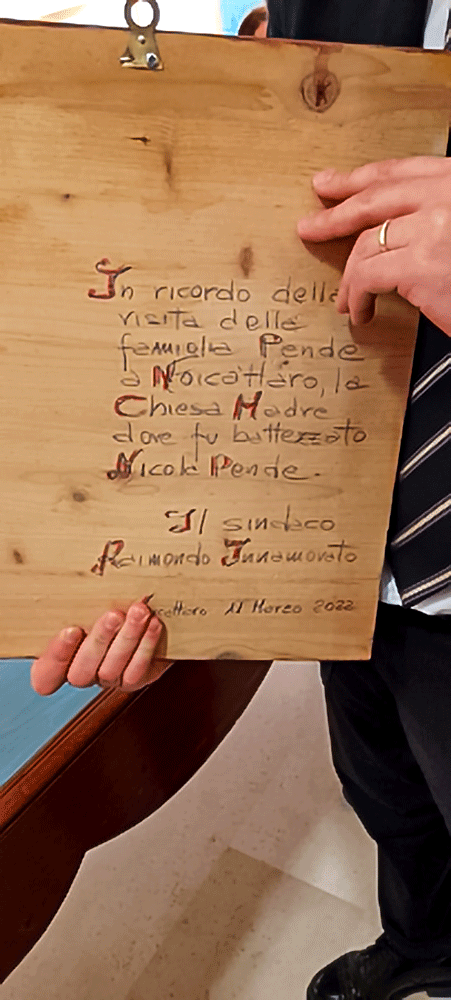 In ricordo della
visita della
famiglia Pende
a Noicattaro, la
Chiesa Madre
dove fu battezzato
Nicola Pende.
Il sindaco
Raimondo Innamorato
11 Marzo 2022